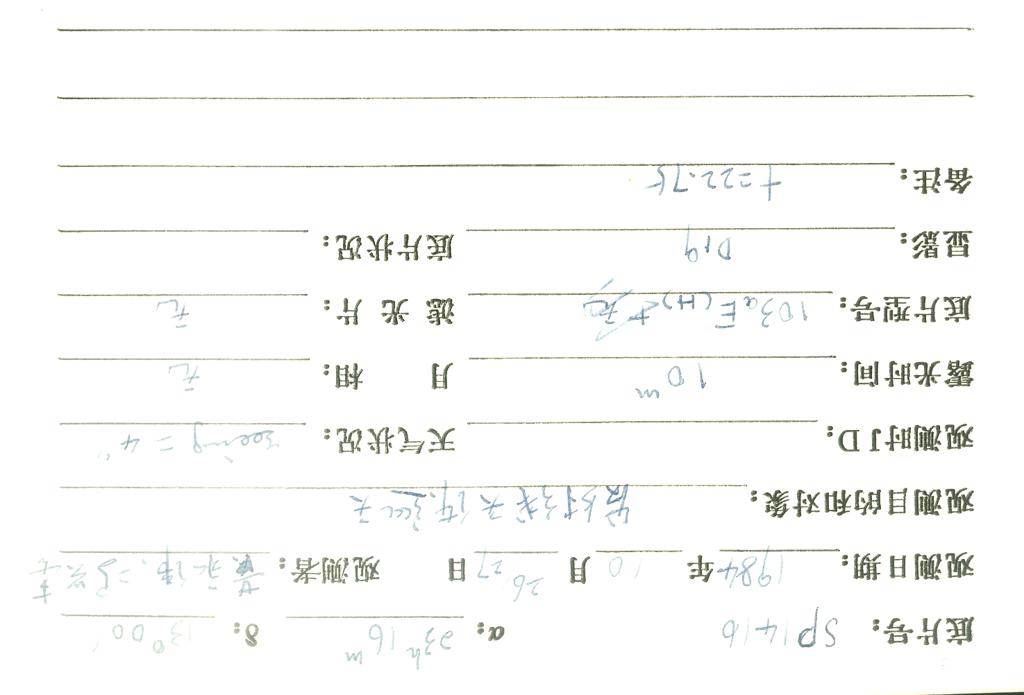 底片号: SP1416 α: 23ʰ16ᵐ δ: 13°00′
观测日期: 1984 年 10 月 26/27 日 观测者: 黄永伟、
观测目的和对象: 发射线天体巡天
观测时JD: 天气状况: seeing = 4″
露光时间: 10ᵐ 月 相: 无
底片型号: 103aE(H) 滤 光 片: 无
显影: D19 底片状况:
备注: t=22.75